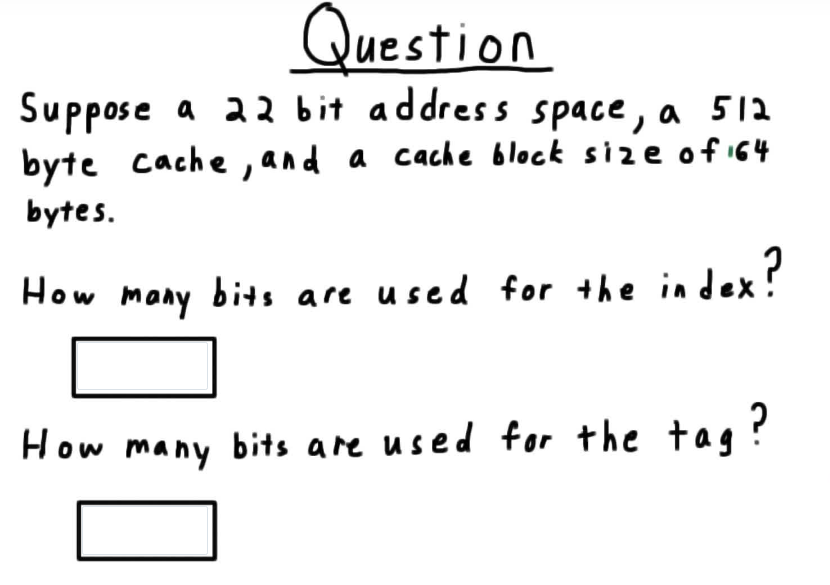 Question
Suppose a 22 bit address space, a 512
byte cache, and a cache block size of 64
bytes.
How many bits are used for the index?
How many bits are used for the tag?